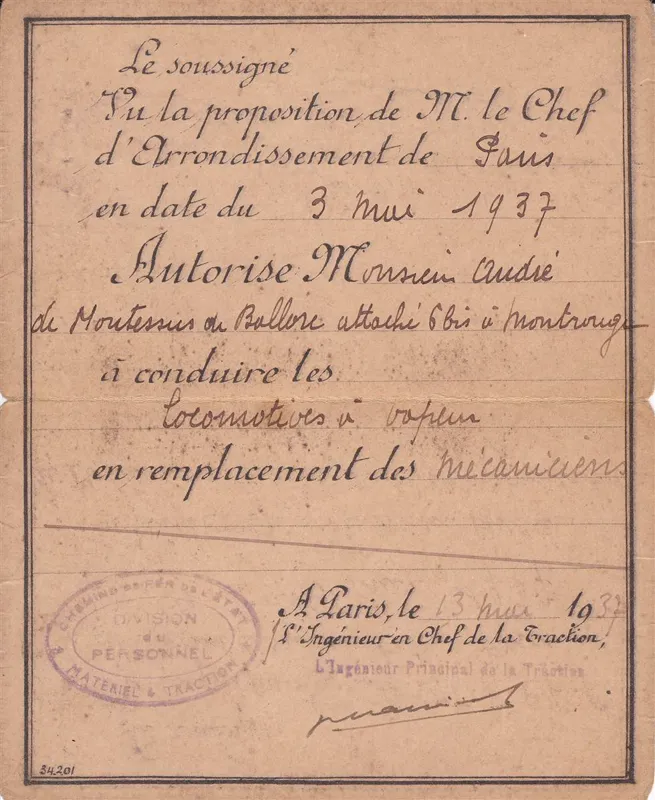 Le soussigné
Vu la proposition de M. le Chef
d'Arrondissement de Paris
en date du 3 mai 1937
Autorise Monsieur André
de Montessus de Ballore attaché 6 bis à Montrouge
à conduire les
locomotives à vapeur
en remplacement des mécaniciens
A Paris, le 13 mai 1937
L'Ingénieur en Chef de la Traction,
L'Ingénieur Principal de la Traction
CHEMINS DE FER DE L'ÉTAT
DIVISION
du
PERSONNEL
MATÉRIEL & TRACTION
34.201